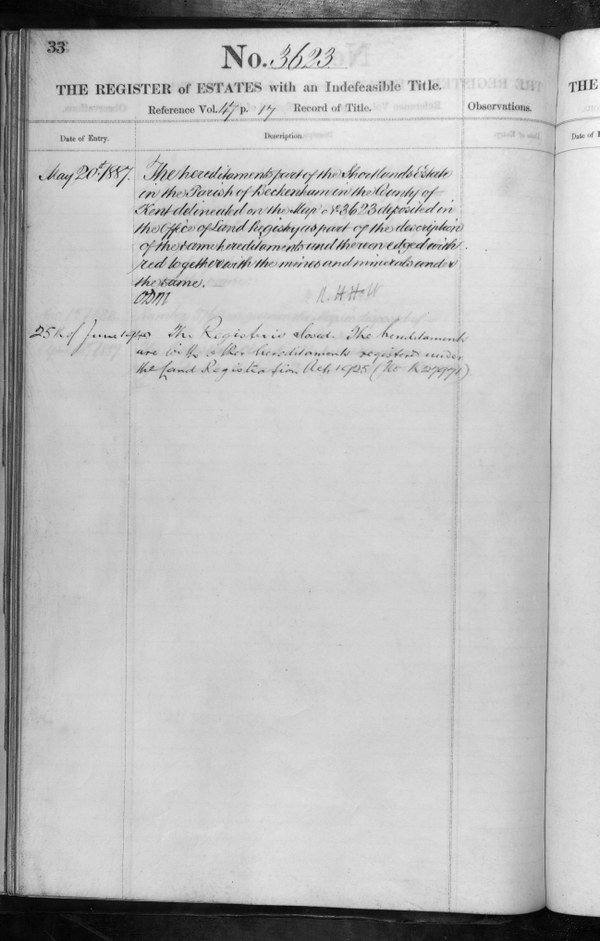 33
No. 3623
THE REGISTER of ESTATES with an Indefeasible Title.
THE
Reference Vol. 47 p. 17 Record of Title.
Observations.
Date of Entry.
Description.
May 20th 1887.
The hereditaments part of the Shortlands Estate
in the Parish of Beckenham in the County of
Kent delineated on the Map No 3623 deposited in
the Office of Land Registry as part of the description
of the same hereditaments and thereon edged with
red together with the mines and minerals under
the same.
25th of June
The Register is closed. The hereditaments
are with other hereditaments registered under
the Land Registration Act, 1925 (No